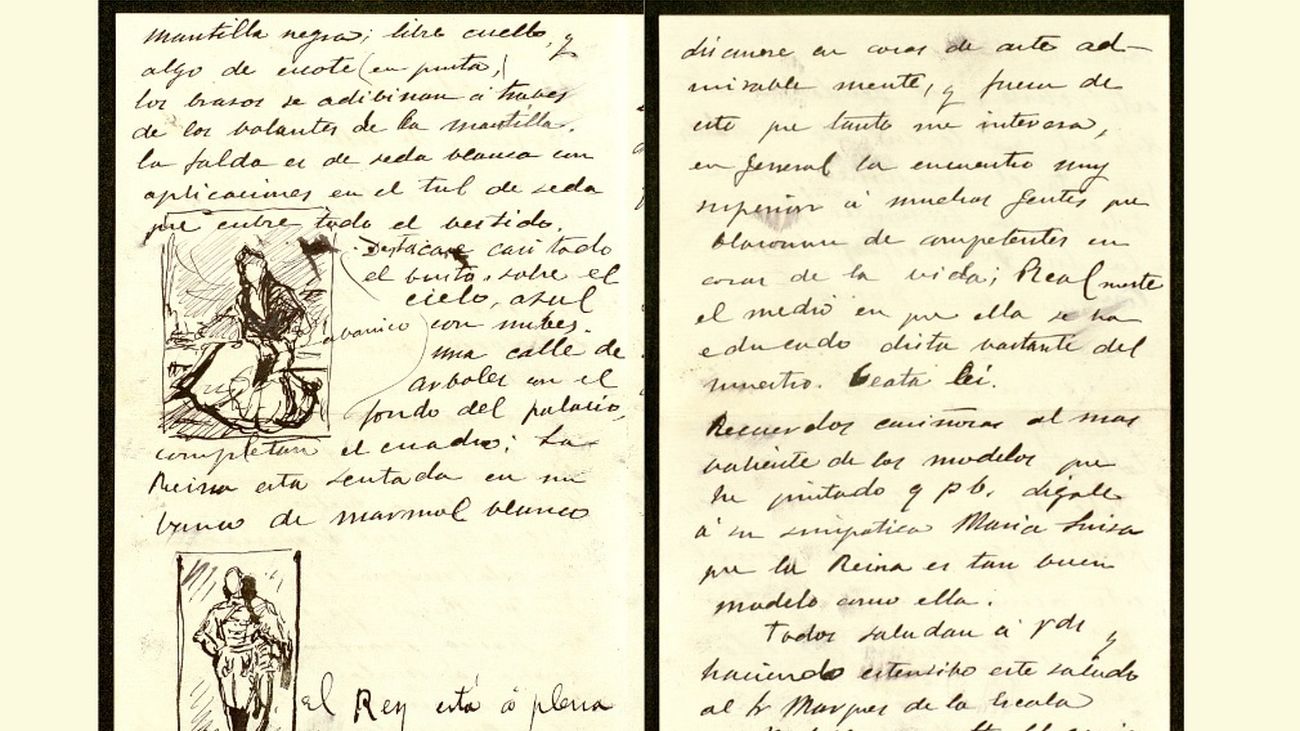 mantilla negra; libre cuello, y
algo de escote (en punta,)
los brasos se adibinan á traves
de los bolantes de la mantilla.
la falda es de seda blanca con
aplicaciones en el tul de seda
que cubre todo el bestido.
Destacase casi todo
el busto, sobre el
cielo, asul
abanico
con nubes.
una calle de
arboles con el
fondo del palacio,
completan el cuadro; La
Reina esta sentada en un
banco de marmol blanco
el Rey está á plena
discurre en cosas de arte ad-
mirable mente, y fuera de
esto que tanto me interesa,
en general la encuentro muy
superior á muchas gentes que
blasonan de competentes en
cosas de la vida; Real mente
el medio en que ella se ha
educado dista bastante del
nuestro. Beata lei.
Recuerdos cariñosos al mas
valiente de los modelos que
he pintado q p b. digale
á su simpatica Maria Luisa
que la Reina es tan buen
modelo como ella.
Todos saludan á Vds y
haciendo estensibo este saludo
al Sr Marques de la Scala